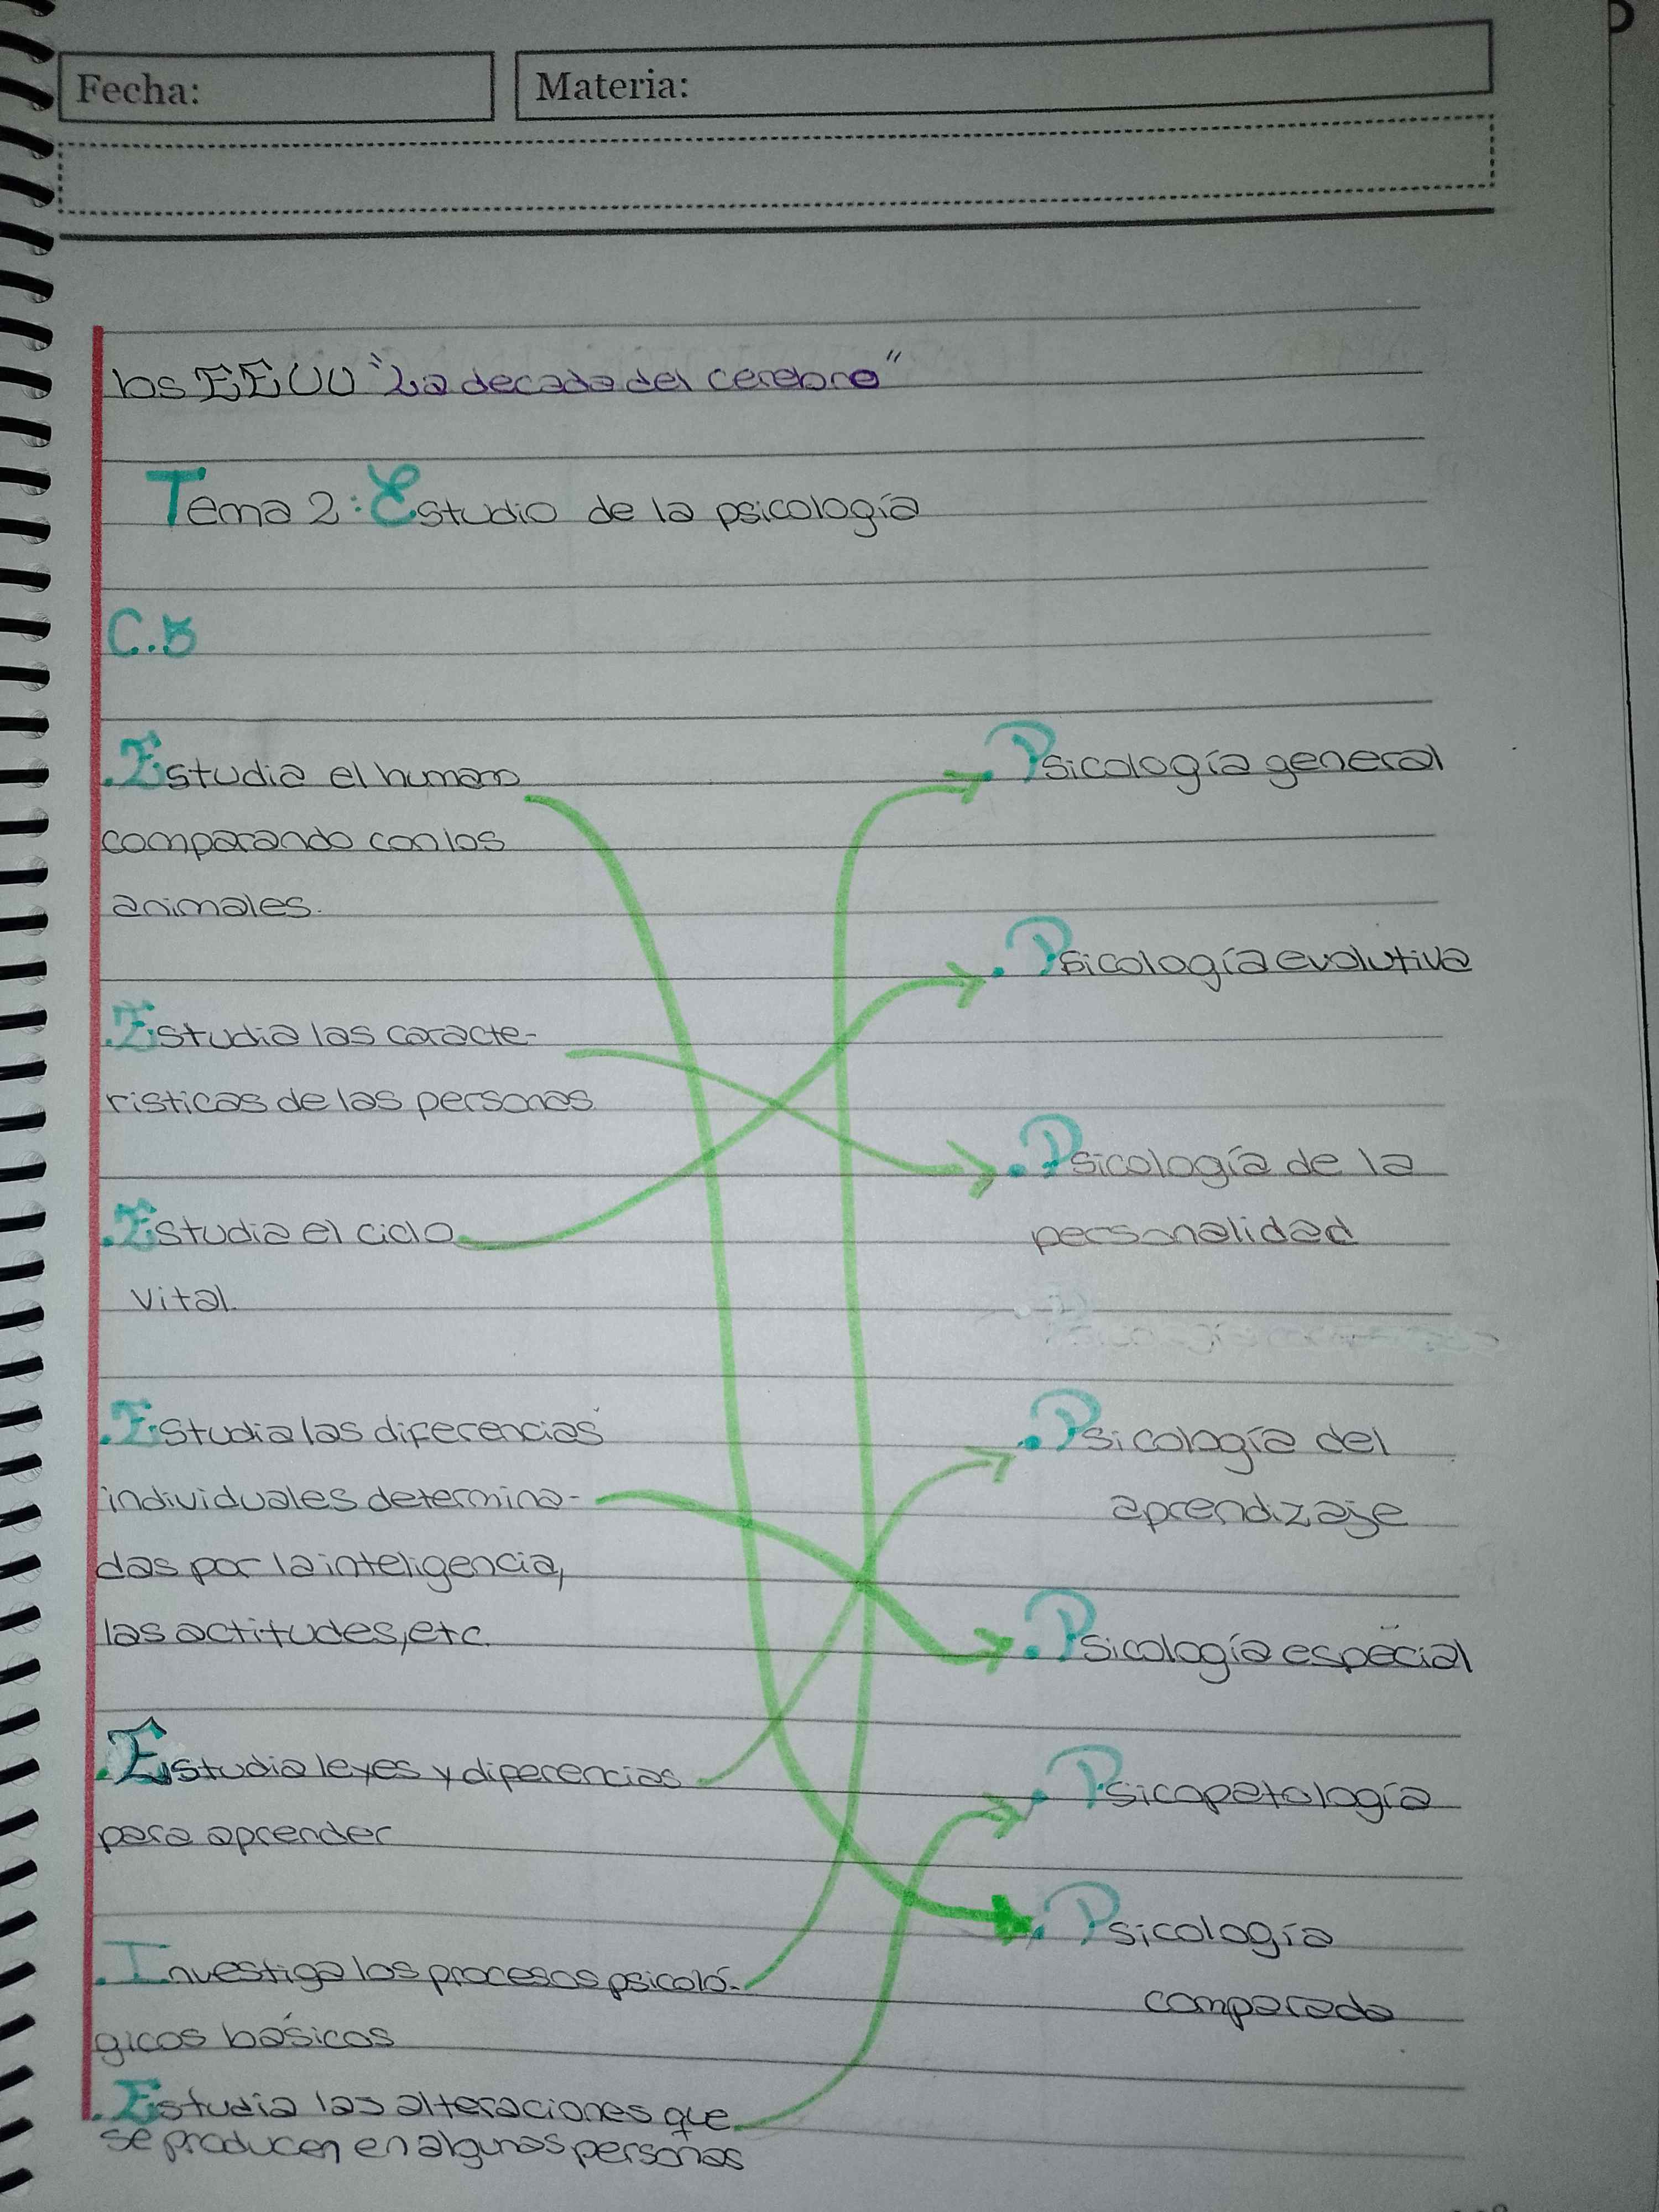 Fecha:
Materia:
los EEUU "La decada del cerebro"
Tema 2: Estudio de la psicología
C.5
.Estudia el humano
comparando con los
animales.
.Estudia las caracte-
risticas de las personas
.Estudia el ciclo
vital.
.Estudia las diferencias
individuales determina-
das por la inteligencia,
las actitudes, etc.
.Estudia leyes y diferencias
para aprender
.Investiga los procesos psicoló-
gicos básicos
.Estudia las alteraciones que
se producen en algunas personas
.Psicología general
.Psicología evolutiva
.Psicología de la
personalidad
.Psicología del
aprendizaje
.Psicología especial
.Psicopatología
.Psicología
comparada